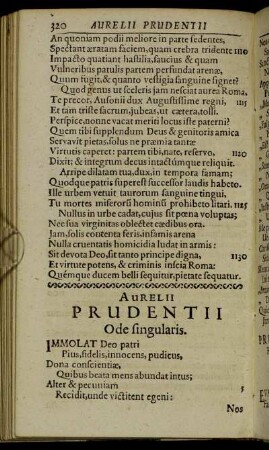 320 AURELII PRUDENTII
An quoniam podii meliore in parte sedentes,
Spectant æratam faciem, quam crebra tridente 1110
Impacto quatiant hastilia, saucius & quam
Vulneribus patulis partem perfundat arenæ,
Quum fugit, & quanto vestigia sanguine signet?
Quod genus ut sceleris jam nesciat aurea Roma,
Te precor, Ausonii dux Augustissime regni, 1115
Et tam triste sacrum, jubeas, ut cætera, tolli.
Perspice, nonne vacat meriti locus iste paterni?
Quem tibi supplendum Deus & genitoris amica
Servavit pietas, solus ne præmia tantæ
Virtutis caperet: partem tibi, nate, reservo, 1120
Dixit: & integrum decus intactumque reliquit.
Arripe dilatam tua, dux, in tempora famam;
Quodque patris superest successor laudis habeto.
Ille urbem vetuit taurorum sanguine tingui,
Tu mortes miserorū hominū prohibeto litari. 1125
Nullus in urbe cadat, cujus sit pœna voluptas;
Nec sua virginitas oblectet cædibus ora.
Jam, solis contenta feris, infamis arena
Nulla cruentatis homicidia ludat in armis:
Sit devota Deo, sit tanto principe digna, 1130
Et virtute potens, & criminis inscia Roma:
Quémque ducem belli sequitur, pietate sequatur.
AURELII
PRUDENTII
Ode singularis.
IMMOLAT Deo patri
Pius, fidelis, innocens, pudicus,
Dona conscientiæ,
Quibus beata mens abundat intus;
Alter & pecuniam 5
Recidit, unde victitent egeni:
Nos